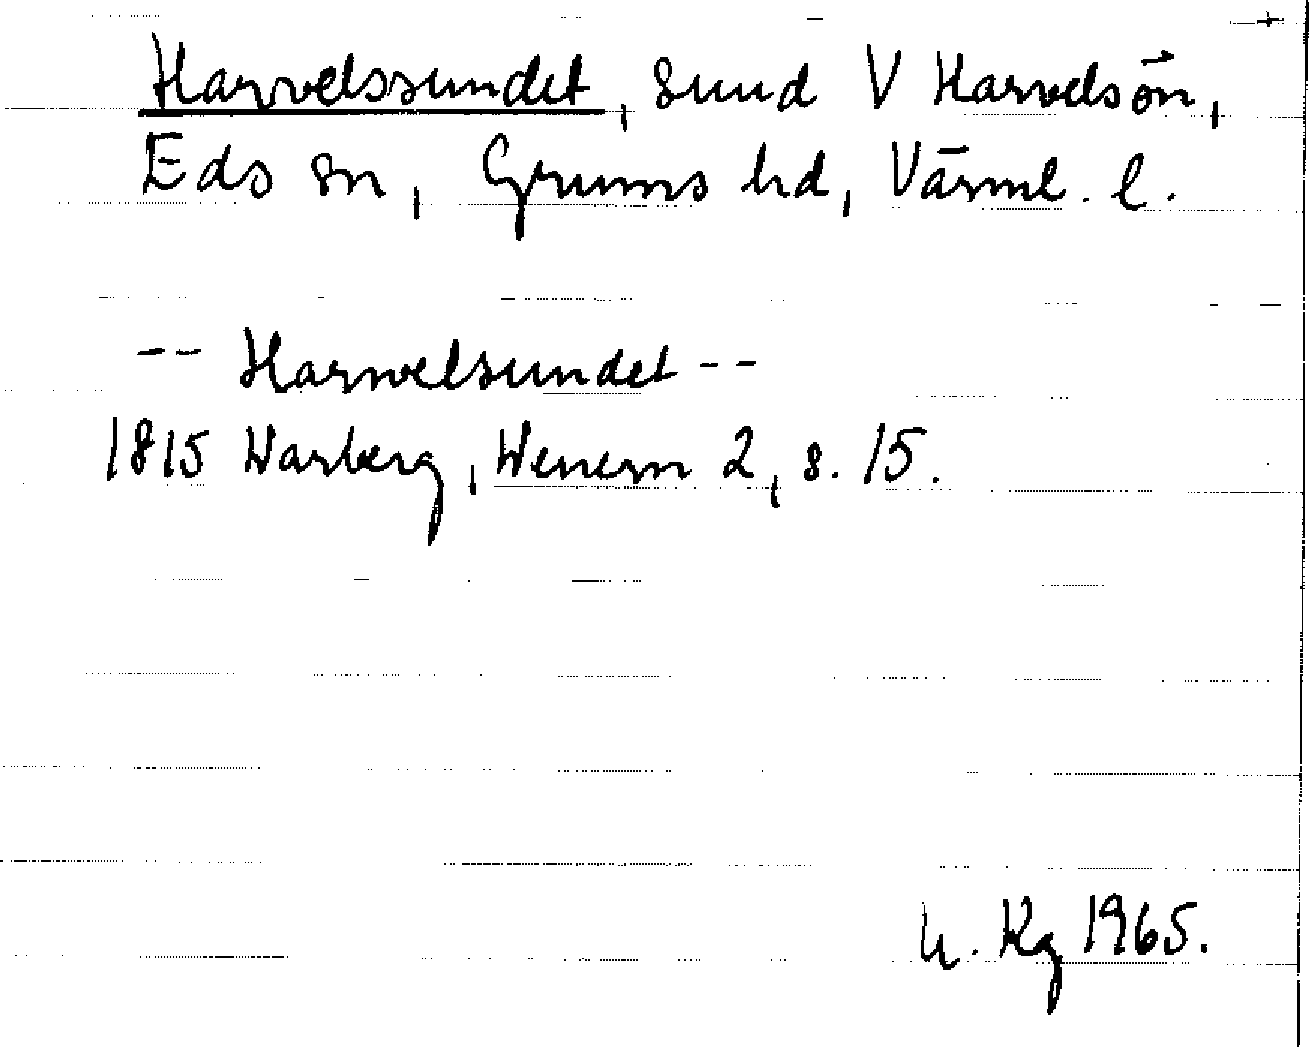 Harvelssundet, sund V Harvelsön,
Eds sn, Grums hd, Värml. l.
-- Harwelsundet --
1815 Warberg, Wenern 2, s. 15.
U. Kg 1965.